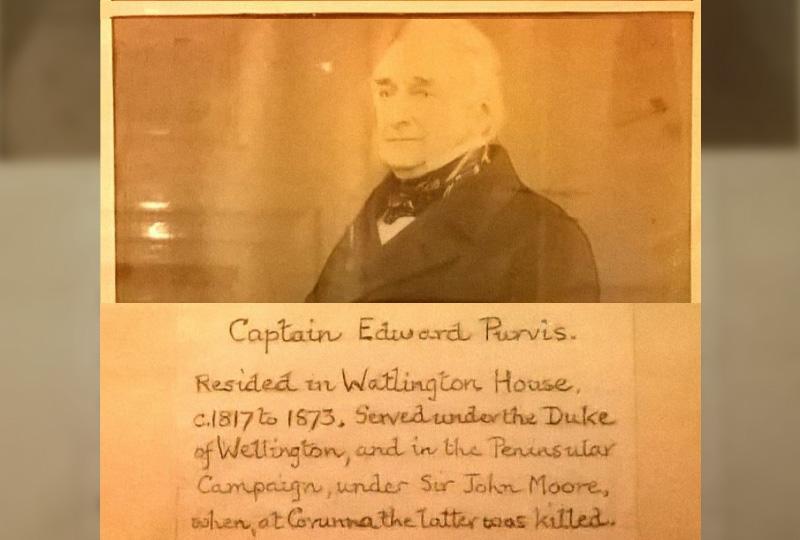 Captain Edward Purvis.
Resided in Watlington House,
c.1817 to 1873. Served under the Duke
of Wellington, and in the Peninsular
Campaign, under Sir John Moore,
when, at Corunna the latter was killed.